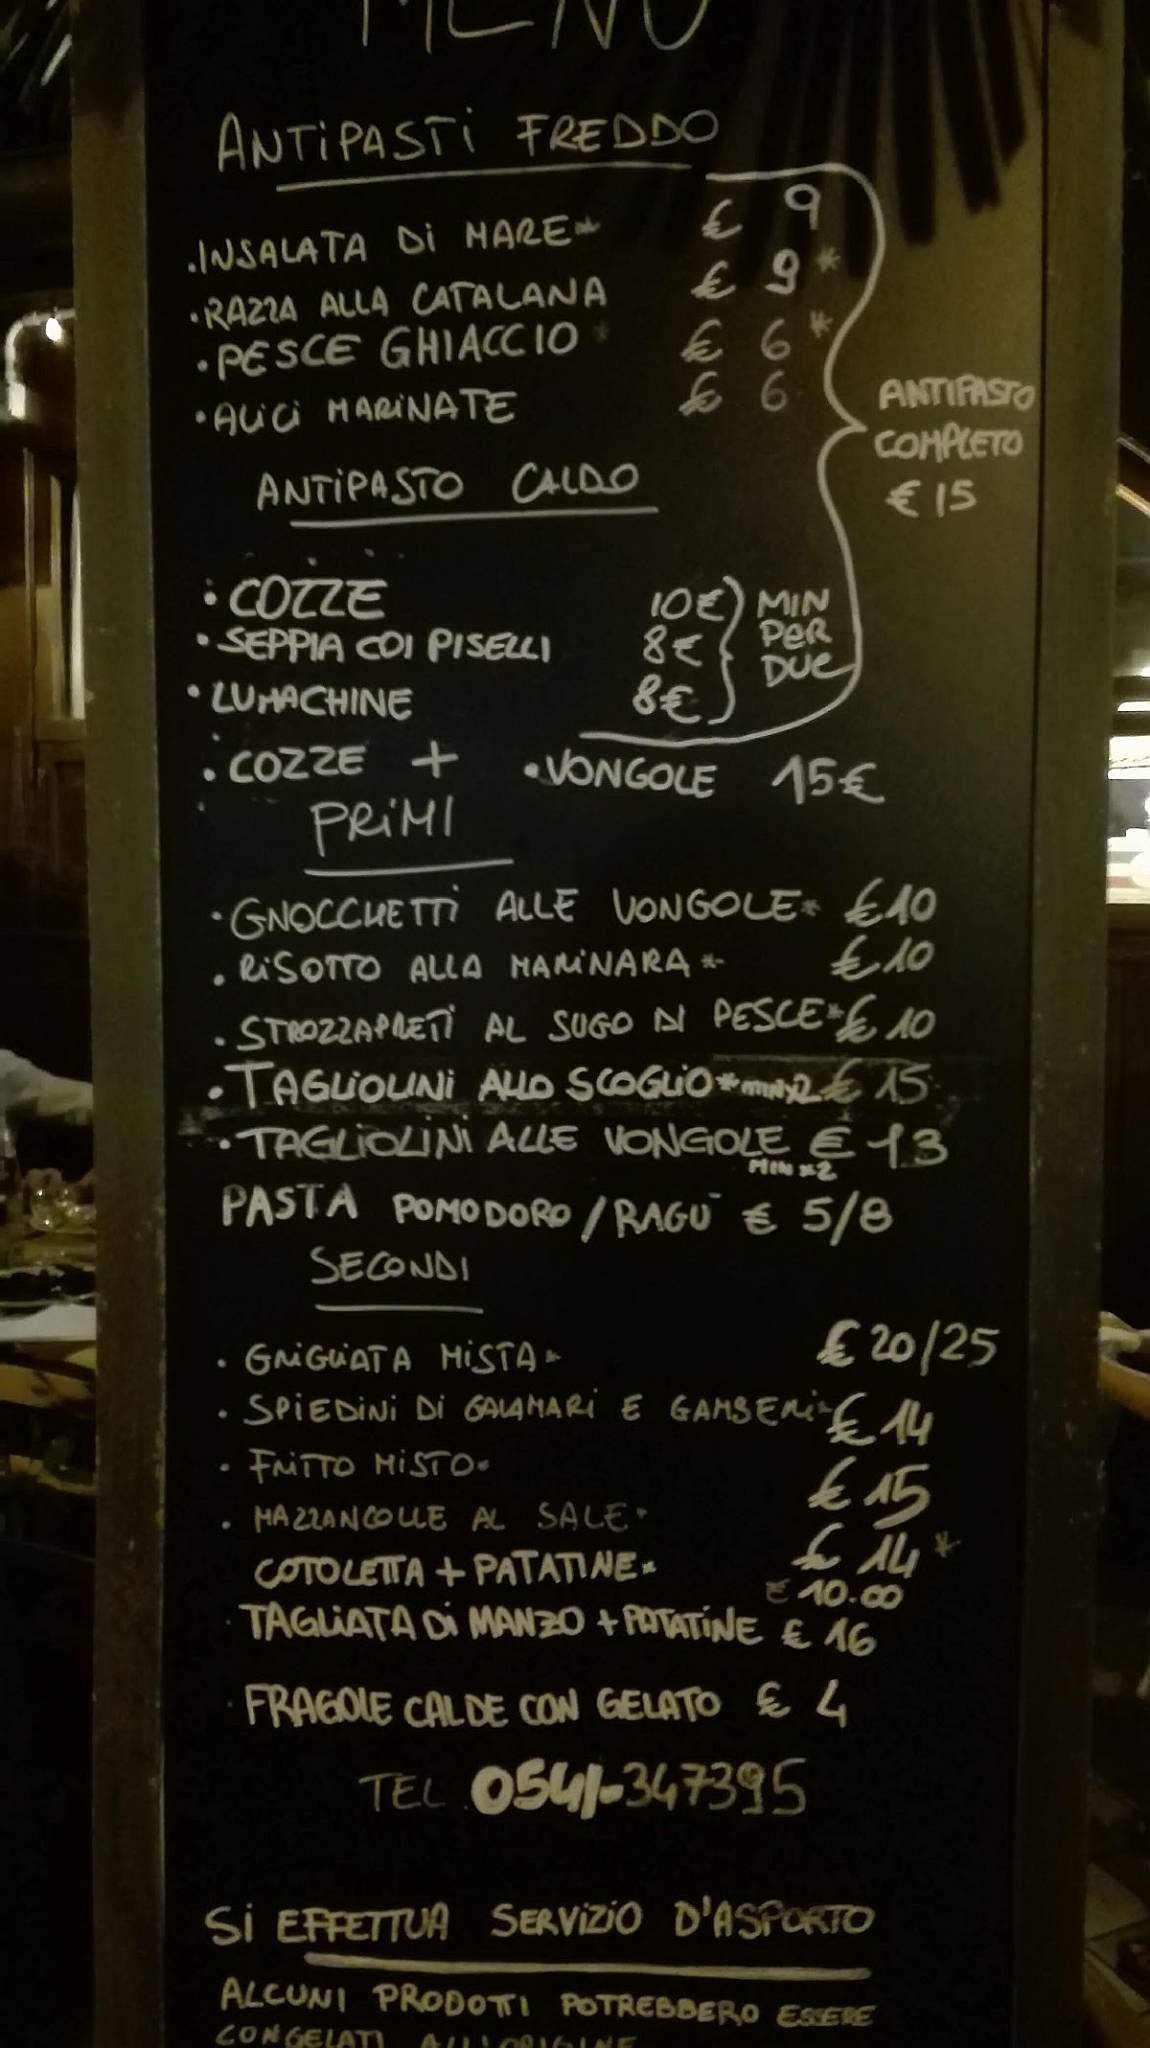 MENU
ANTIPASTI FREDDO
. INSALATA DI MARE* € 9
. RAZZA ALLA CATALANA € 9 *
. PESCE GHIACCIO * € 6 *
. ALICI MARINATE € 6
ANTIPASTO
COMPLETO
€ 15
ANTIPASTO CALDO
. COZZE 10€
. SEPPIA COI PISELLI 8€
. LUMACHINE 8€
MIN
PER
DUE
. COZZE + . VONGOLE 15€
PRIMI
. GNOCCHETTI ALLE VONGOLE* €10
. RISOTTO ALLA MARINARA* €10
. STROZZAPRETI AL SUGO DI PESCE* € 10
. TAGLIOLINI ALLO SCOGLIO* min x2 € 15
. TAGLIOLINI ALLE VONGOLE € 13
MIN x 2
PASTA POMODORO / RAGÙ € 5/8
SECONDI
. GRIGLIATA MISTA* € 20/25
. SPIEDINI DI CALAMARI E GAMBERI* € 14
. FRITTO MISTO* € 15
. MAZZANCOLLE AL SALE* € 14 *
COTOLETTA + PATATINE* € 10.00
. TAGLIATA DI MANZO + PATATINE € 16
. FRAGOLE CALDE CON GELATO € 4
TEL. 0541-347395
SI EFFETTUA SERVIZIO D'ASPORTO
ALCUNI PRODOTTI POTREBBERO ESSERE
CONGELATI ALL'ORIGINE